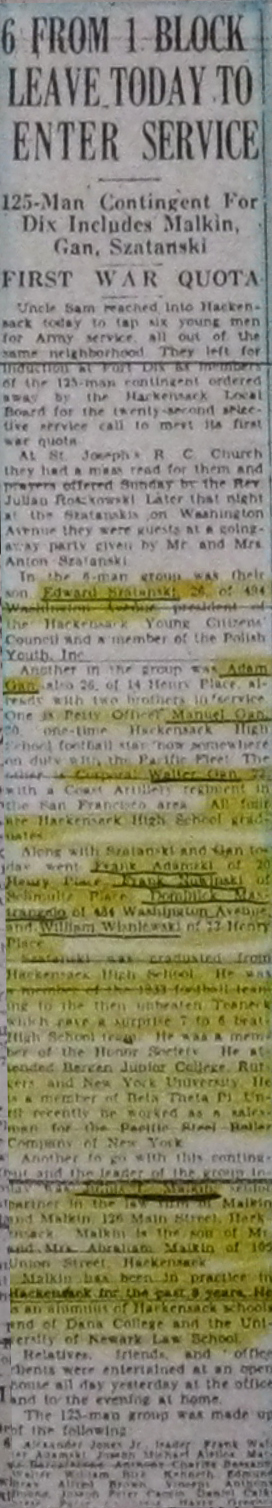 6 FROM 1 BLOCK
LEAVE TODAY TO
ENTER SERVICE
125-Man Contingent For
Dix Includes Malkin,
Gan, Szatanski
FIRST WAR QUOTA
Uncle Sam reached into Hacken-
sack today to tap six young men
for Army service, all out of the
same neighborhood. They left for
induction at Fort Dix as members
of the 125-man contingent ordered
away by the Hackensack Local
Board for the twenty-second selec-
tive service call to meet its first
war quota.
At St. Joseph's R. C. Church
they had a mass read for them and
prayers offered Sunday by the Rev.
Julian Roszkowski. Later that night
at the Szatanskis on Washington
Avenue they were guests at a going-
away party given by Mr. and Mrs.
Anton Szatanski.
In the 6-man group was their
son Edward Szatanski, 26, of 494
Washington Avenue, president of
the Hackensack Young Citizens'
Council and a member of the Polish
Youth, Inc.
Another in the group was Adam
Gan, also 26, of 14 Henry Place, al-
ready with two brothers in service.
One is Petty Officer Manuel Gan,
20, one-time Hackensack High
School football star now somewhere
on duty with the Pacific Fleet. The
other is Corporal Walter Gan, 22,
with a Coast Artillery regiment in
the San Francisco area. All four
are Hackensack High School grad-
uates.
Along with Szatanski and Gan to-
day went Frank Adamski of 20
Henry Place, Frank of
Schmultz Place, Dominick Mas-
trangelo of 484 Washington Avenue,
and William Wisniewski of 22 Henry
Place.
Szatanski was graduated from
Hackensack High School. He was
a member of the 1933 football team
which gave a surprise 7 to 6 beat-
ing to the then unbeaten Teaneck
High School team. He was a mem-
ber of the Honor Society. He at-
tended Bergen Junior College, Rut-
gers and New York University. He
is a member of Beta Theta Pi. Un-
til recently he worked as a sales-
man for the Pacific Steel Boiler
Company of New York.
Another to go with this conting-
ent and the leader of the group to-
day was Malkin, senior
partner in the law firm of Malkin
and Malkin, 126 Main Street, Hack-
ensack. Malkin is the son of Mr.
and Mrs. Abraham Malkin of 105
Union Street, Hackensack.
Malkin has been in practice in
Hackensack for the past 9 years. He
is an alumnus of Hackensack schools
and of Dana College and the Uni-
versity of Newark Law School.
Relatives, friends, and office
clients were entertained at an open
house all day yesterday at the office
and in the evening at home.
The 125-man group was made up
of the following:
Alexander Jones Jr., leader, Frank